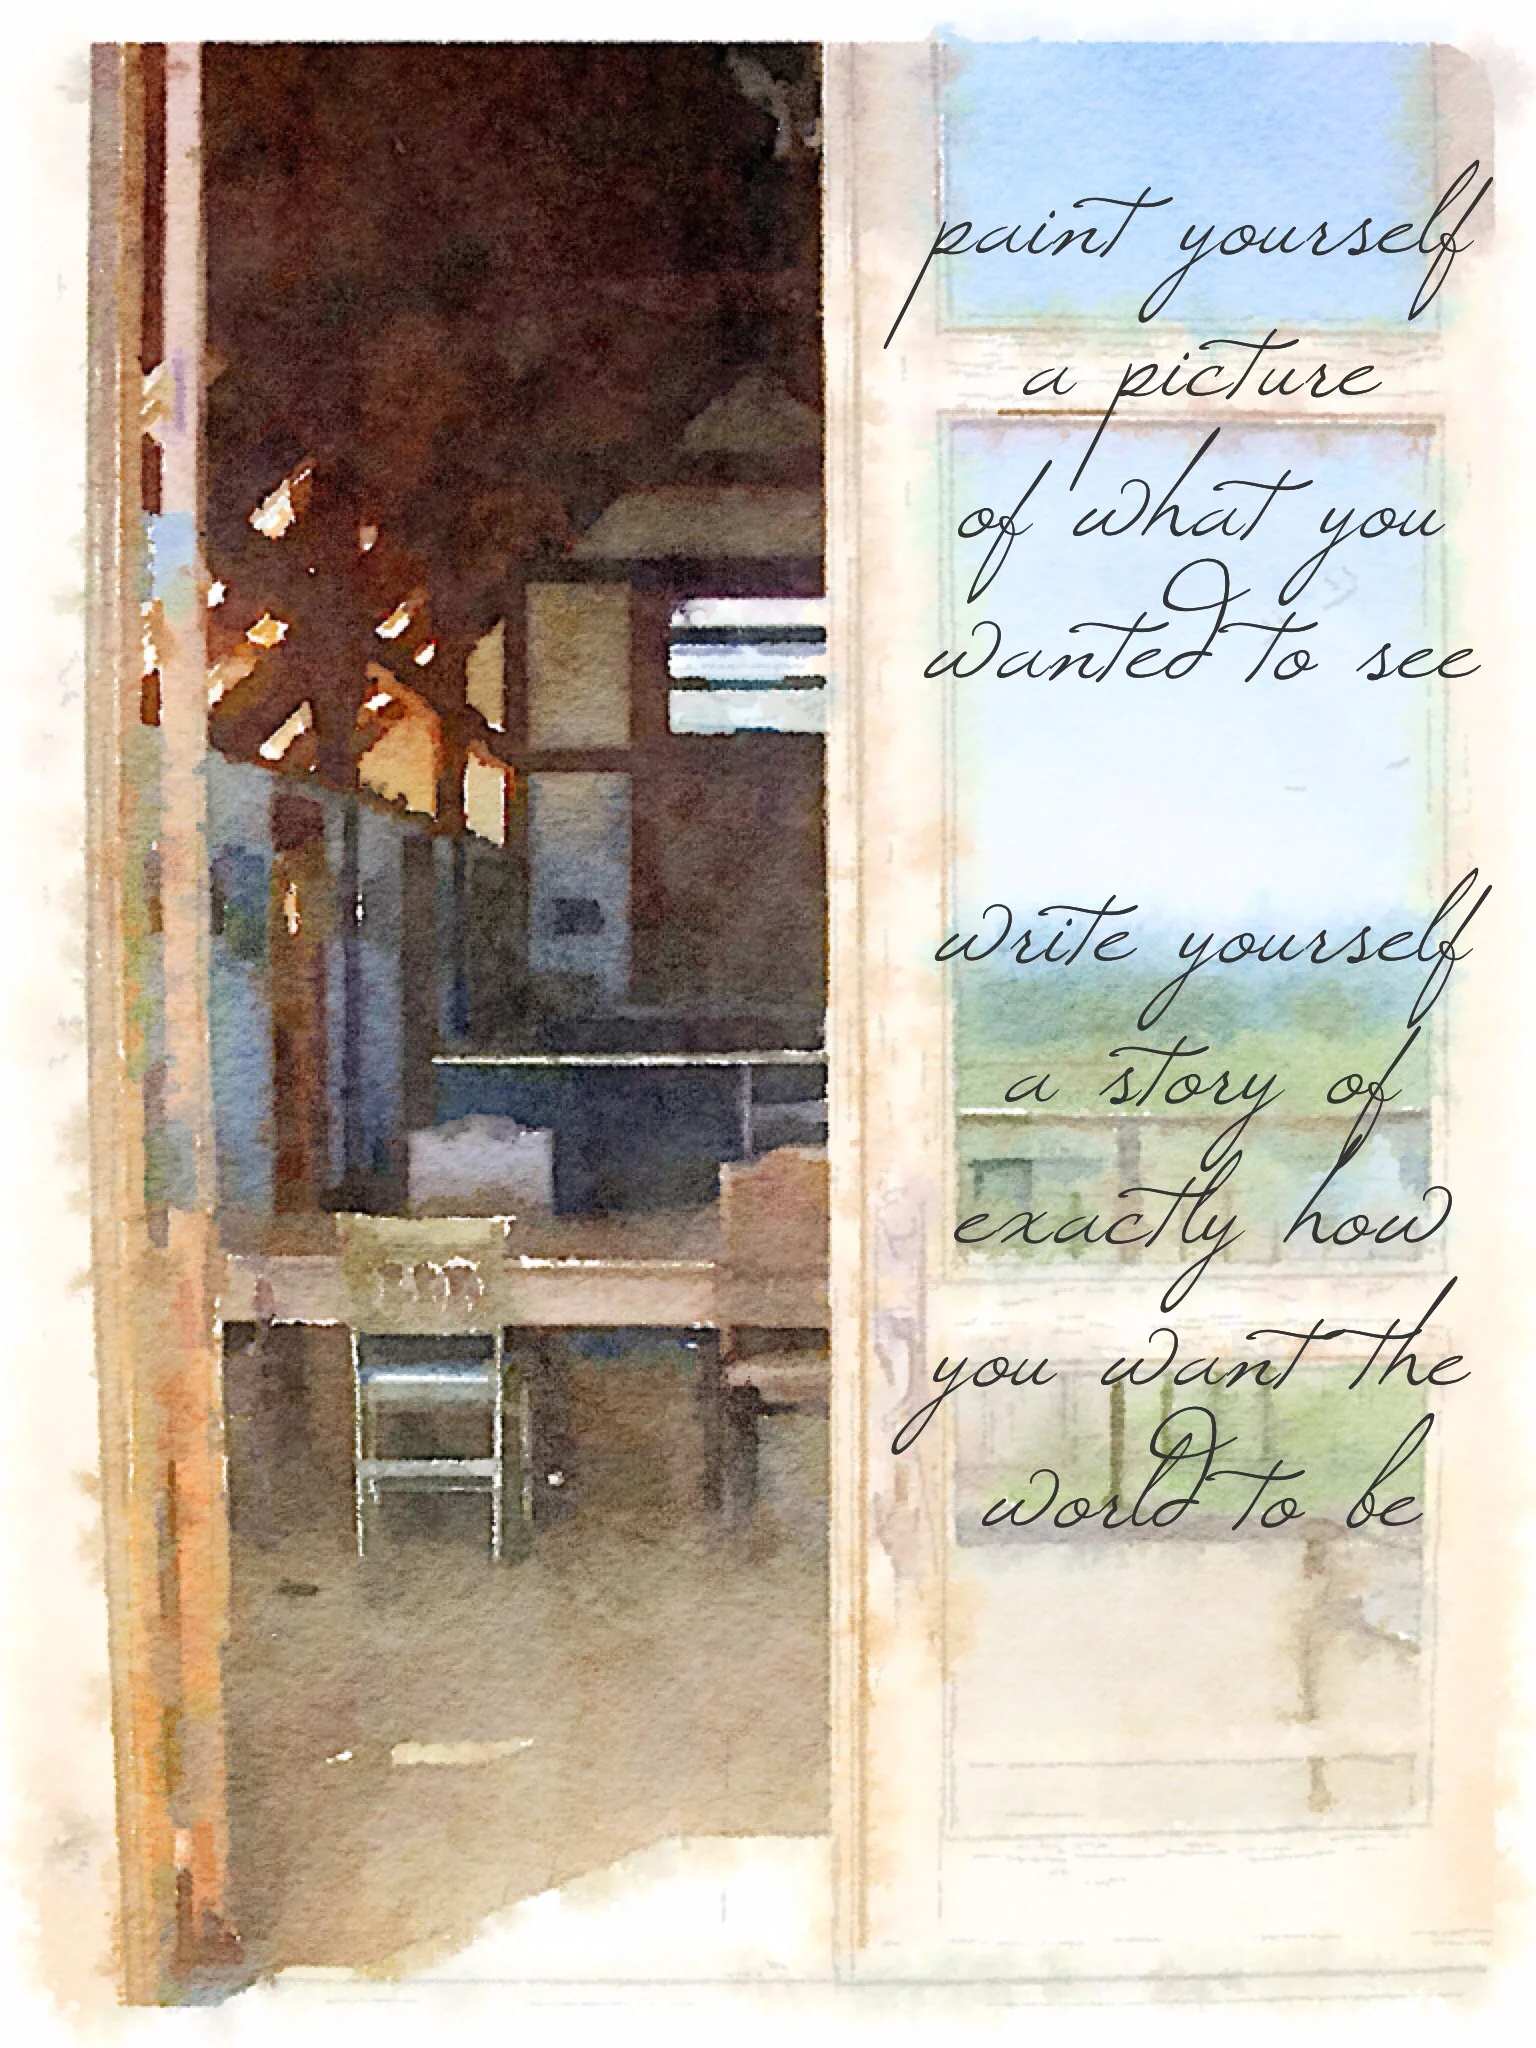 paint yourself
a picture
of what you
wanted to see
write yourself
a story of
exactly how
you want the
world to be